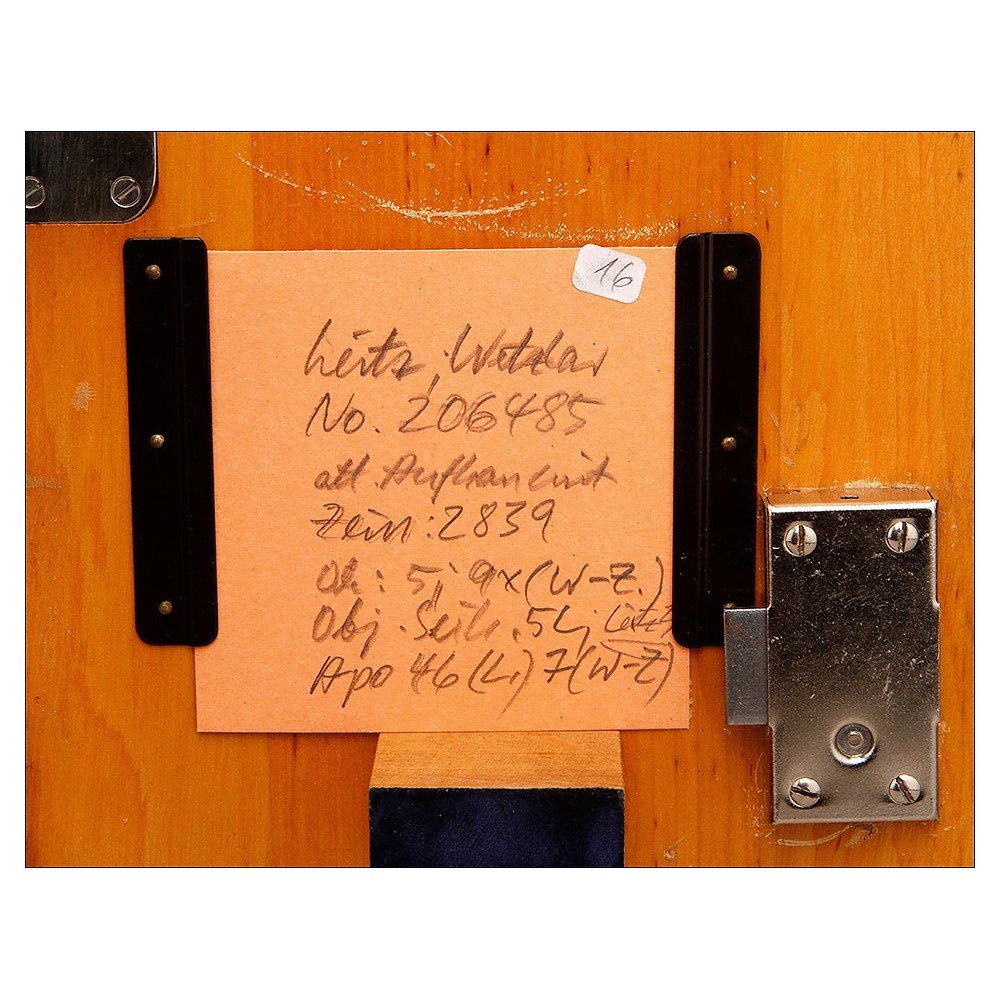 16
Leitz, Wetzlar
No. 206485
att.
Zein: 2839
Ok: 5; 9x (W-Z.)
Obj. Seib. 5L; Leitz 3
Apo 46 (L.) 7 (W-Z)